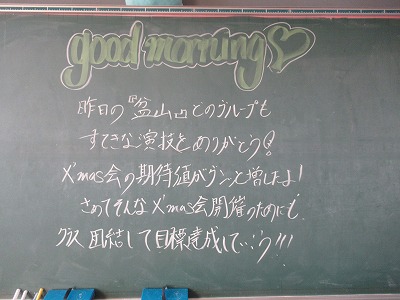 good morning♡
昨日の『盆山』どのグループも
すてきな演技をありがとう！
X'mas会の期待値がグンと増したよ！
さめてそんなX'mas会開催のためにも
クラス団結して目標達成して…ウ!!!